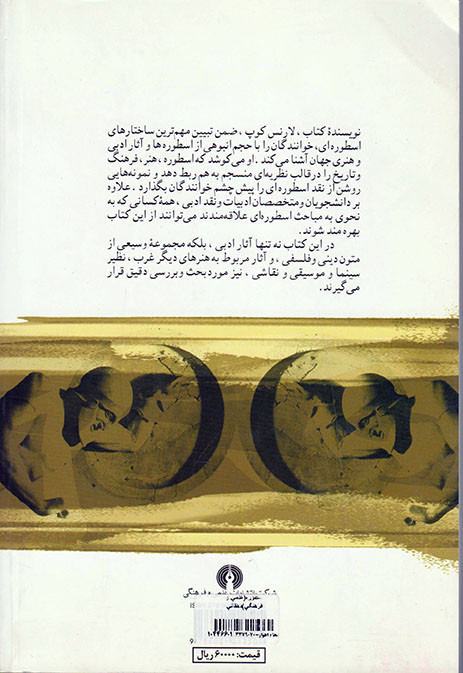 نویسندهٔ کتاب، لارنس کوپ، ضمن تبیین مهم‌ترین ساختارهای
اسطوره‌ای، خوانندگان را با حجم انبوهی از اسطوره‌ها و آثار ادبی
و هنری جهان آشنا می‌کند. او می‌کوشد که اسطوره، هنر، فرهنگ
و تاریخ را در قالب نظریه‌ای منسجم به هم ربط دهد و نمونه‌هایی
روشن از نقد اسطوره‌ای را پیش چشم خوانندگان بگذارد. علاوه
بر دانشجویان و متخصصان ادبیات و نقد ادبی، همهٔ کسانی که به
نحوی به مباحث اسطوره‌ای علاقه‌مندند می‌توانند از این کتاب
بهره مند شوند.
در این کتاب نه تنها آثار ادبی، بلکه مجموعهٔ وسیعی از
متون دینی و فلسفی، و آثار مربوط به هنرهای دیگر غرب، نظیر
سینما و موسیقی و نقاشی، نیز مورد بحث و بررسی دقیق قرار
می‌گیرند.
شرکت انتشارات علمی و فرهنگی
قیمت: ۶۰۰۰۰ ریال